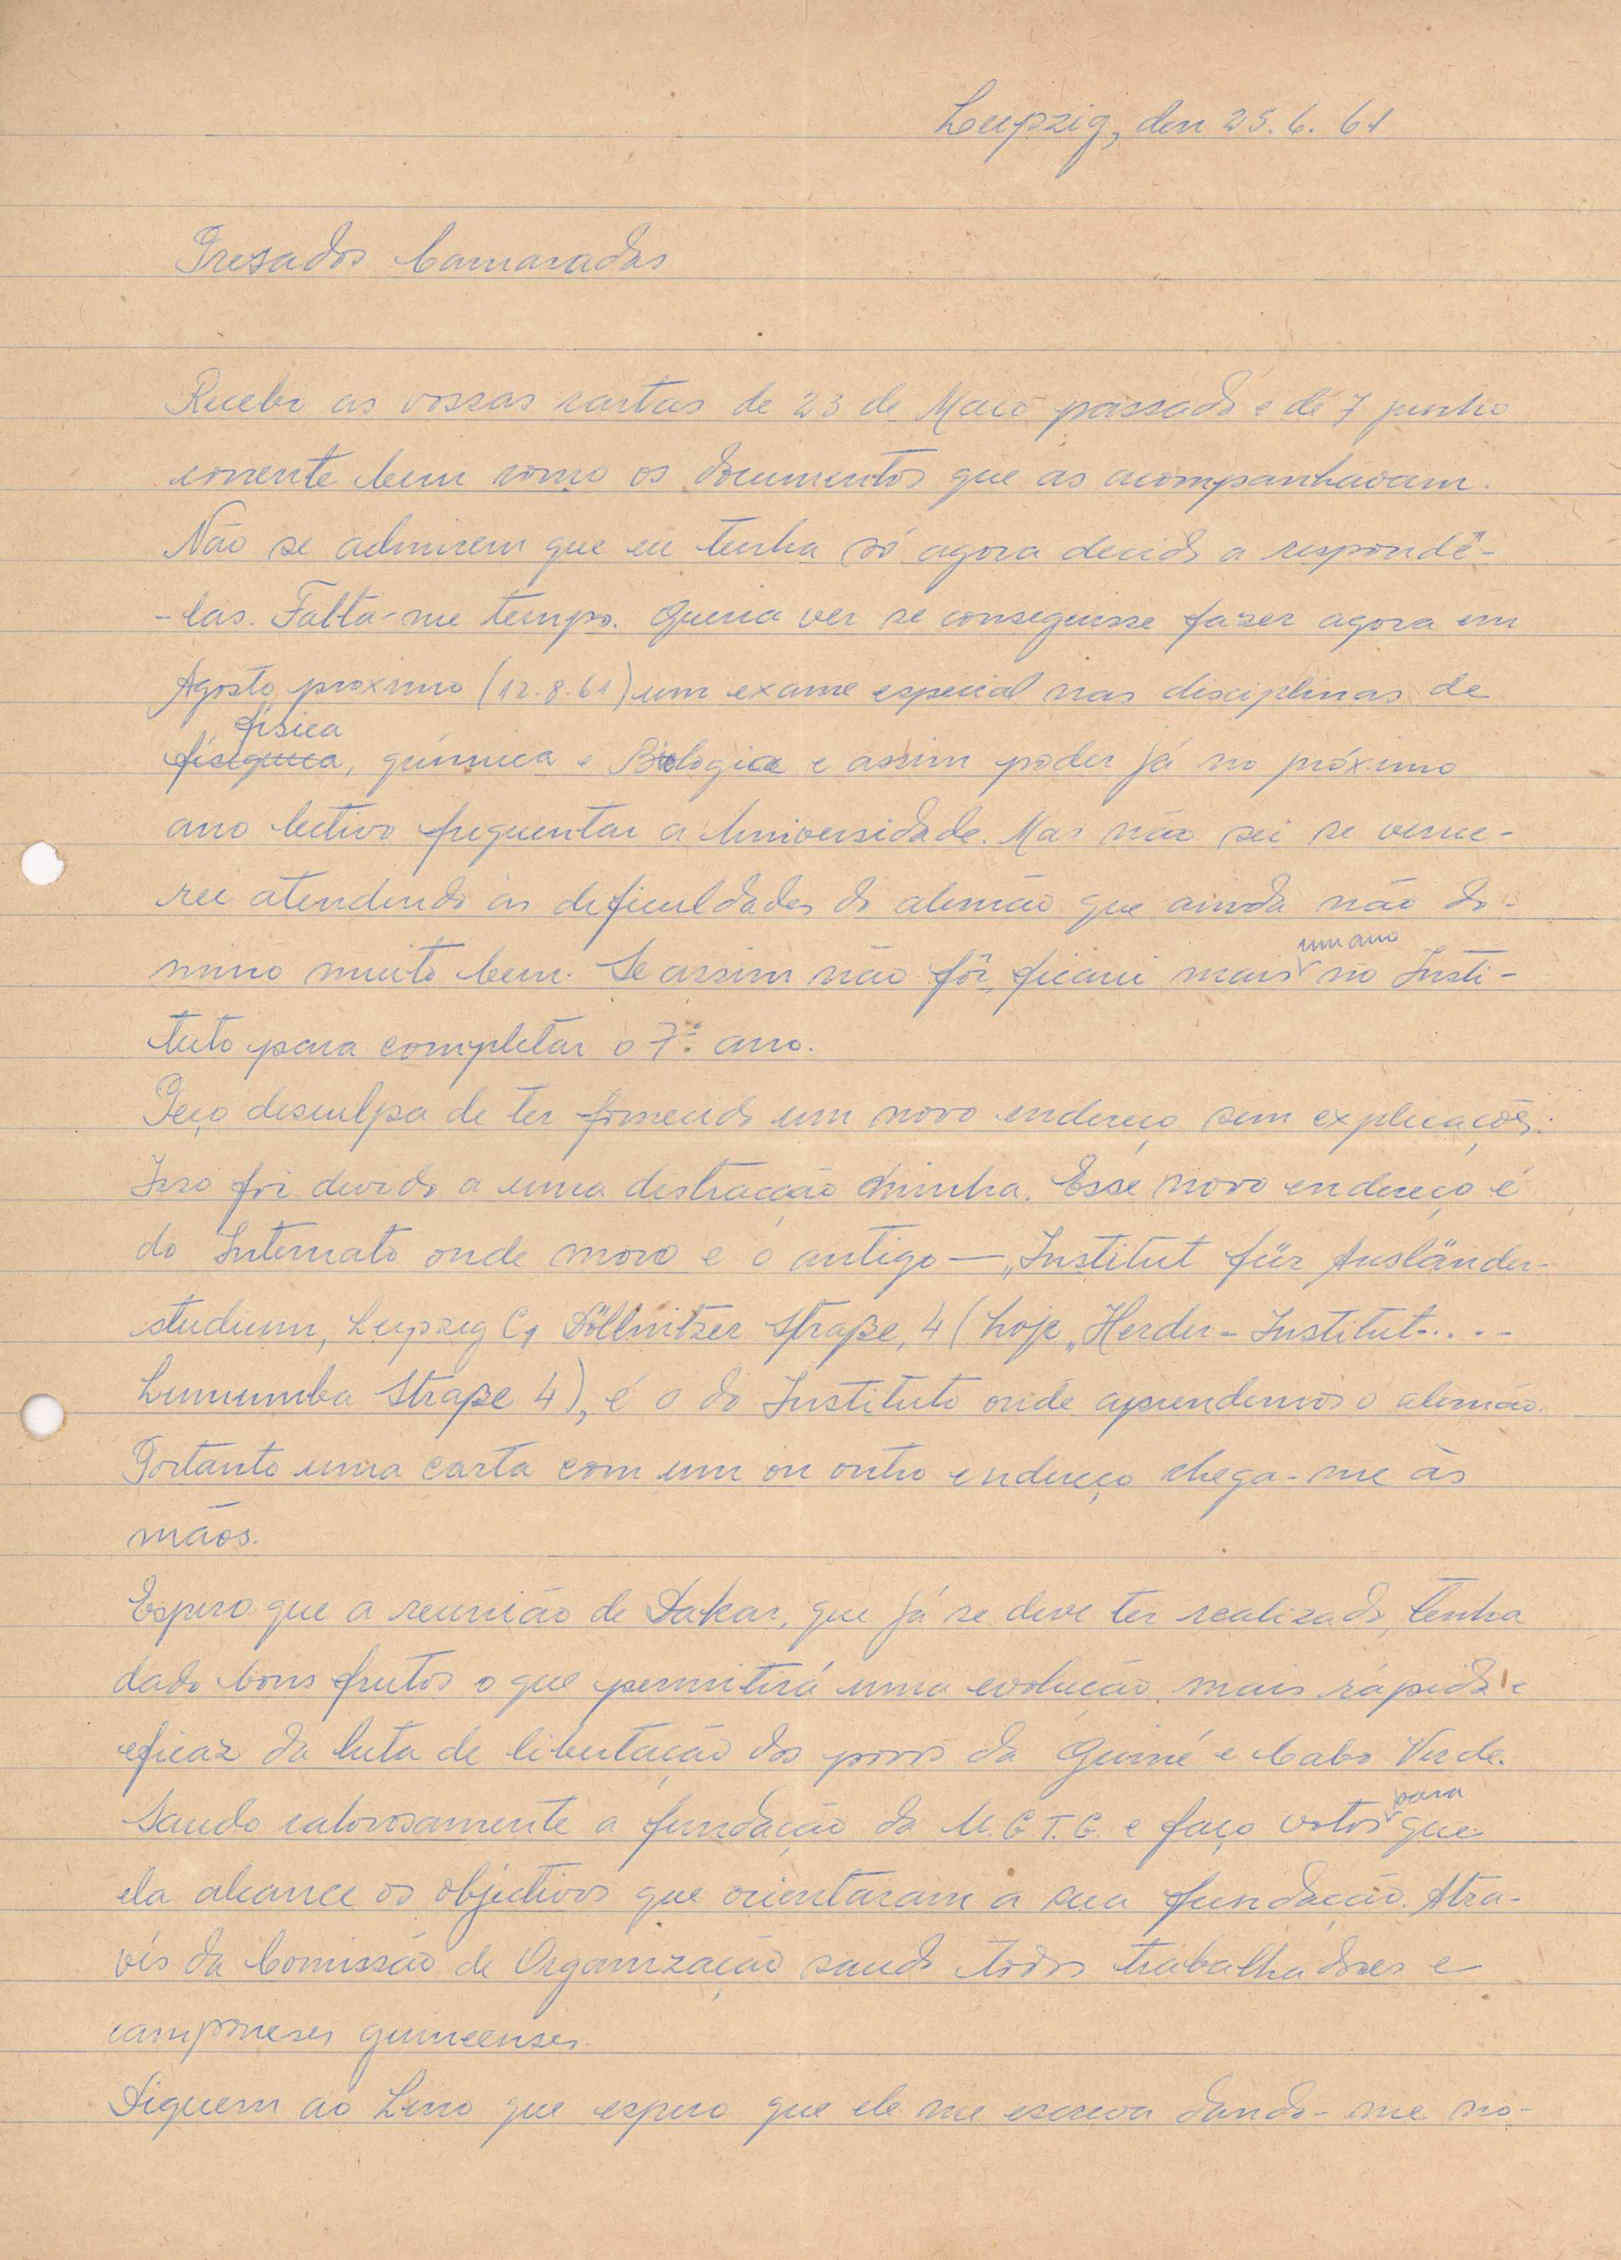 Leipzig, den 25.6.61
Presados Camaradas
Recebi as vossas cartas de 23 de Maio passado e de 7 junho
corrente bem como os documentos que as acompanhavam.
Não se admirem que eu tenha só agora decido a respondê-
-las. Falta-me tempo. Queria ver se conseguisse fazer agora em
Agosto proximo (12.8.61) um exame especial nas disciplinas de
física
, química e Biologia e assim poder já no próximo
ano lectivo frequentar a Universidade. Mas não sei se vence-
rei atendendo às deficuldades do alemão que ainda não do-
mino muito bem. Se assim não fôr, ficarei mais um ano no Insti-
tuto para completar o 7º ano.
Peço desculpa de ter fornecido um novo endereço sem explicações.
Isso foi devido a uma distracção minha. Esse novo endereço é
do Internato onde moro e o antigo — „Institut für Ausländer-
studium, Leipzig C1 Döllnitzer Straße, 4 (hoje „Herder-Institut.....
Lumumba Straße 4), é o do Instituto onde aprendemos o alemão.
Portanto uma carta com um ou outro endereço chega-me às
mãos.
Espero que a reunião de Dakar, que já se deve ter realizado, tenha
dado bons frutos o que permitirá uma evolução mais rápida e
eficaz da luta de libertação dos povos da Guiné e Cabo Verde.
Saudo calorosamente a fundação da U.G.T.G. e faço votos para que
ela alcance os objectivos que orientaram a sua fundação. Atra-
vés da Comissão de Organização saudo todos trabalhadores e
camponeses guineenses.
Diguem ao Lino que espero que ele me escreva dando-me no-